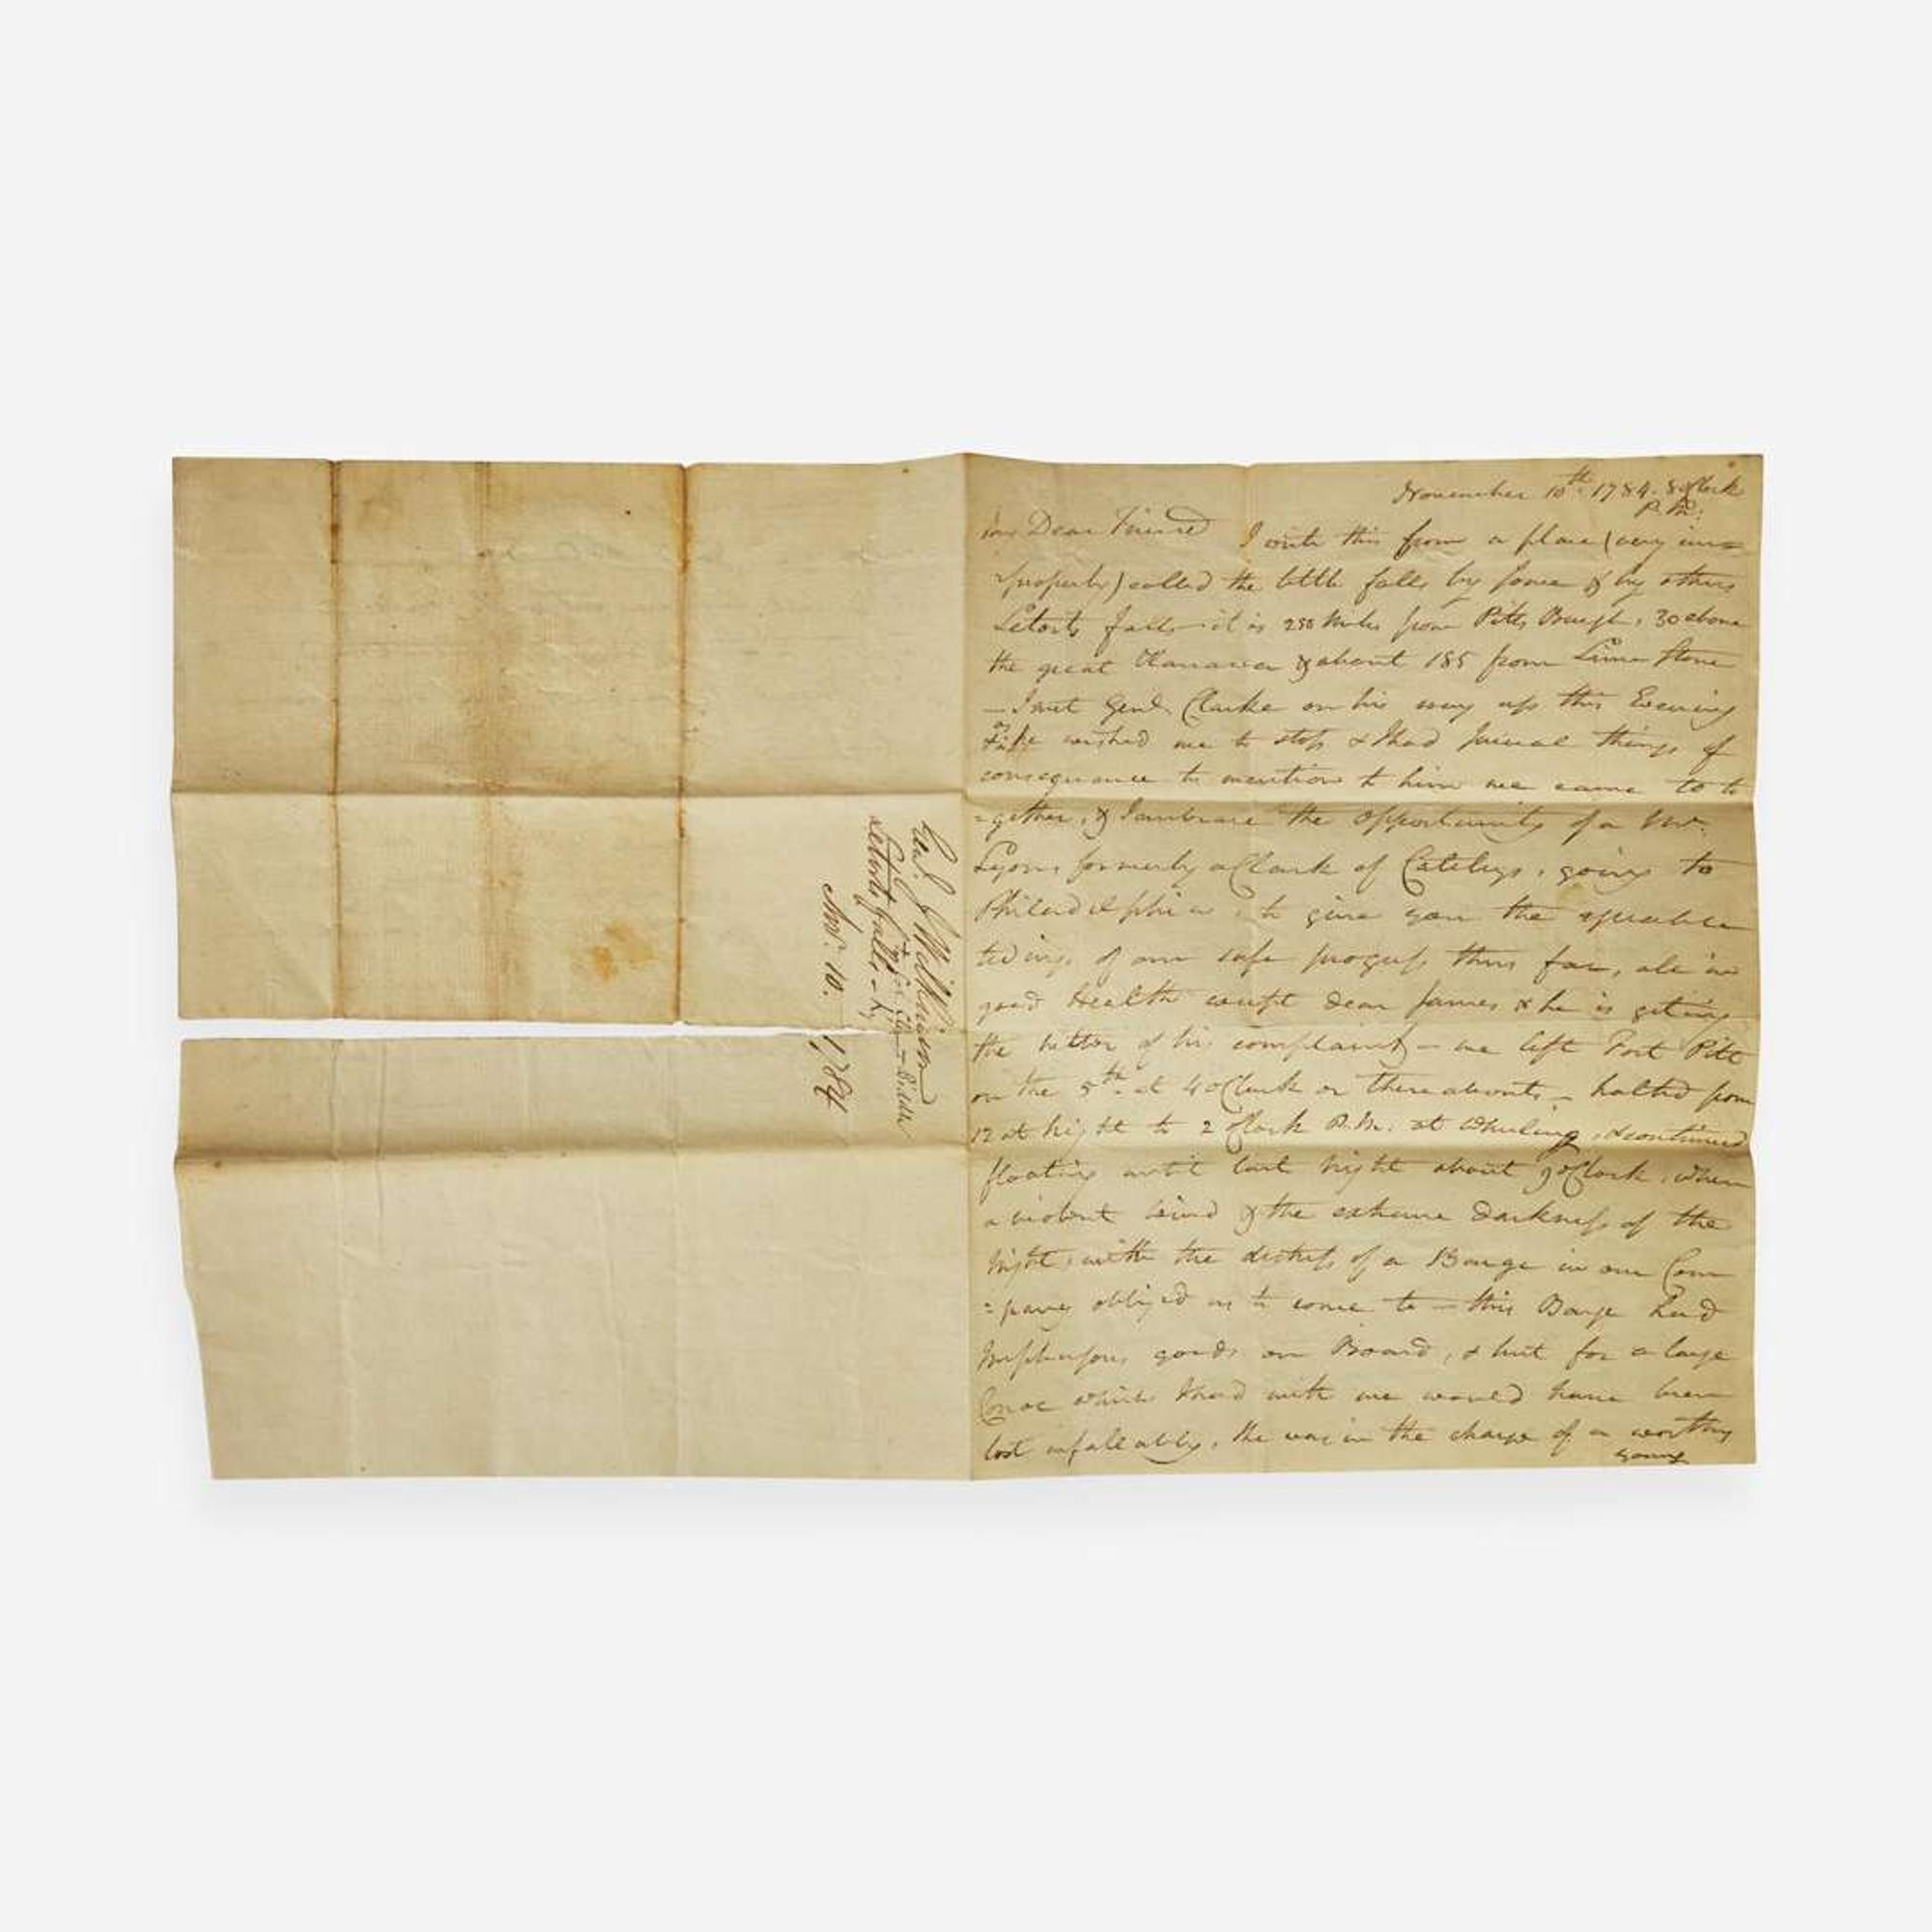 November 10th. 1784. 8 oClock
P.M:
my Dear Friend I write this from a place (very im=
=properly) called the little falls by some & by others
Letarts falls it is 255 Miles from Pitts Burgh, 30 above
the great Kanawa & about 185 from Lime stone
— I met Genl. Clarke on his way up this Evening
& as he wished me to stop & I had several things of
consequence to mention to him we came to to
=gether, & I embrace the opportunity of a Mr.
Lyons formerly a Clark of , going to
Philadelphia, to give you the agreable
tidings of our safe progress thus far, all in
good Health except dear James & he is geting
the better of his complaint — we left Fort Pitt
on the 5th. at 4 oClock or thereabouts — halted from
12 at Night to 2 oClock P.M. at Whuling, & continued
floating until last Night about 9 oClock, when
a violent Wind & the extreme Darkness of the
Night, with the distress of a Barge in our Com
=pany obliged us to come to — this Barge had
goods on Board, & but for a large
Canoe which I had with me would have been
lost infaleably, she was in the charge of a worthy
young
Genl. J Wilkinson
Letarts falls
Novr. 10. 1784